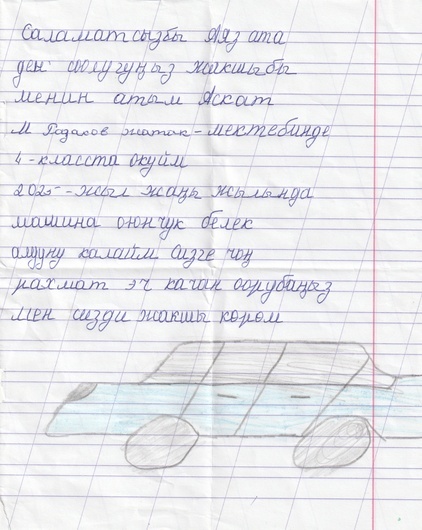 Саламатсызбы Аяз ата
ден соолугуңыз жакшыбы
менин атым Аскат
М жатак-мектебинде
4-класста окуйм
2025-жыл жаңы жылында
машина оюнчук белек
алууну каалайм Сизге чоң
рахмат эч качан оорубаңыз
мен сизди жакшы кором